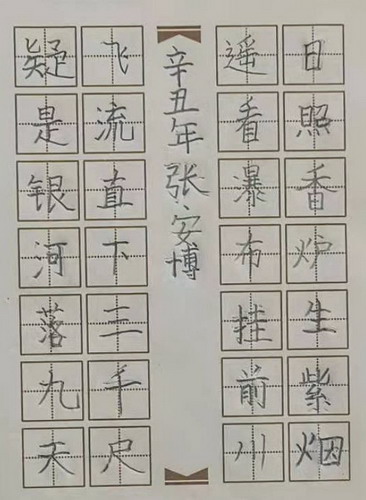 日照香炉生紫烟
遥看瀑布挂前川
辛丑年张安博
飞流直下三千尺
疑是银河落九天